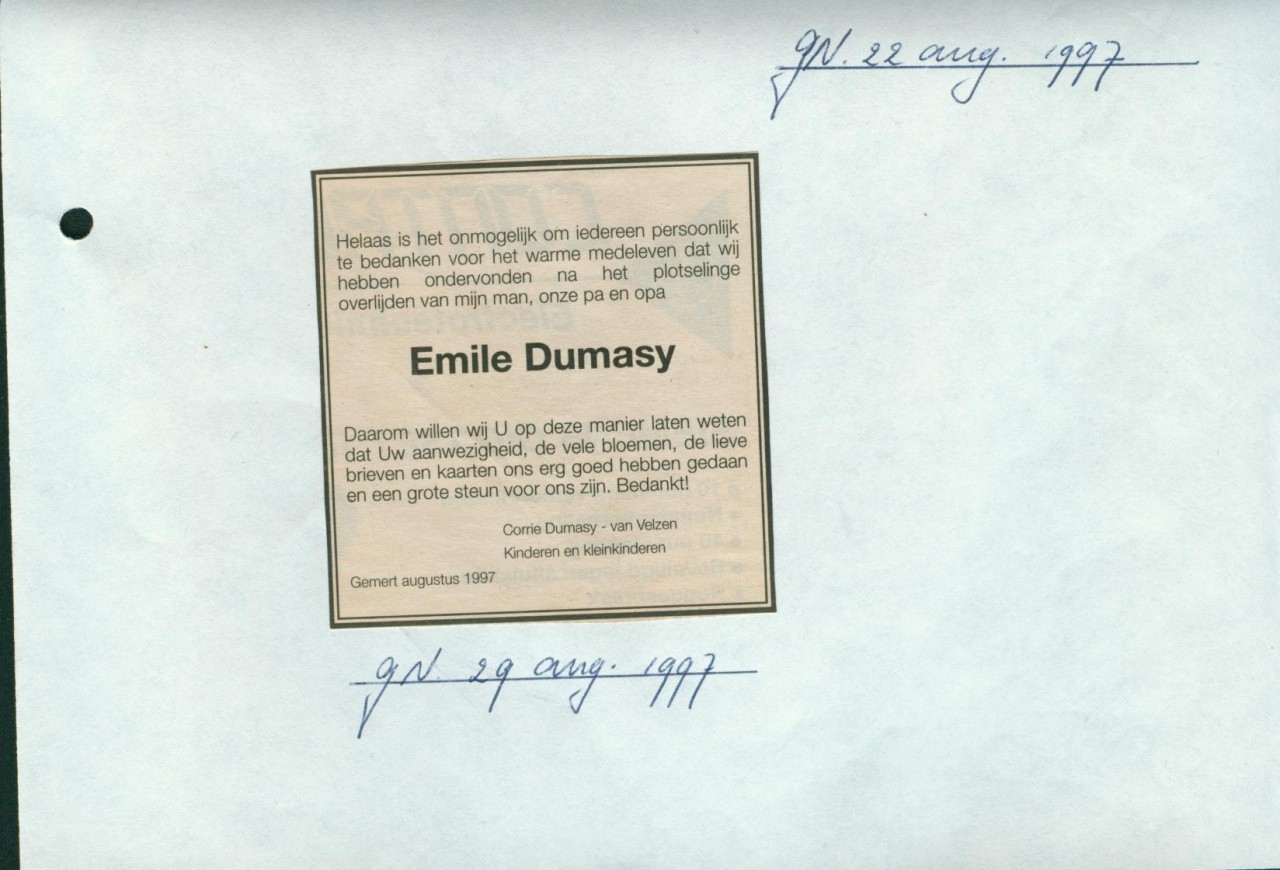 GN. 22 aug. 1997
Helaas is het onmogelijk om iedereen persoonlijk
te bedanken voor het warme medeleven dat wij
hebben ondervonden na het plotselinge
overlijden van mijn man, onze pa en opa
Emile Dumasy
Daarom willen wij U op deze manier laten weten
dat Uw aanwezigheid, de vele bloemen, de lieve
brieven en kaarten ons erg goed hebben gedaan
en een grote steun voor ons zijn. Bedankt!
Corrie Dumasy - van Velzen
Kinderen en kleinkinderen
Gemert augustus 1997
GN. 29 aug. 1997